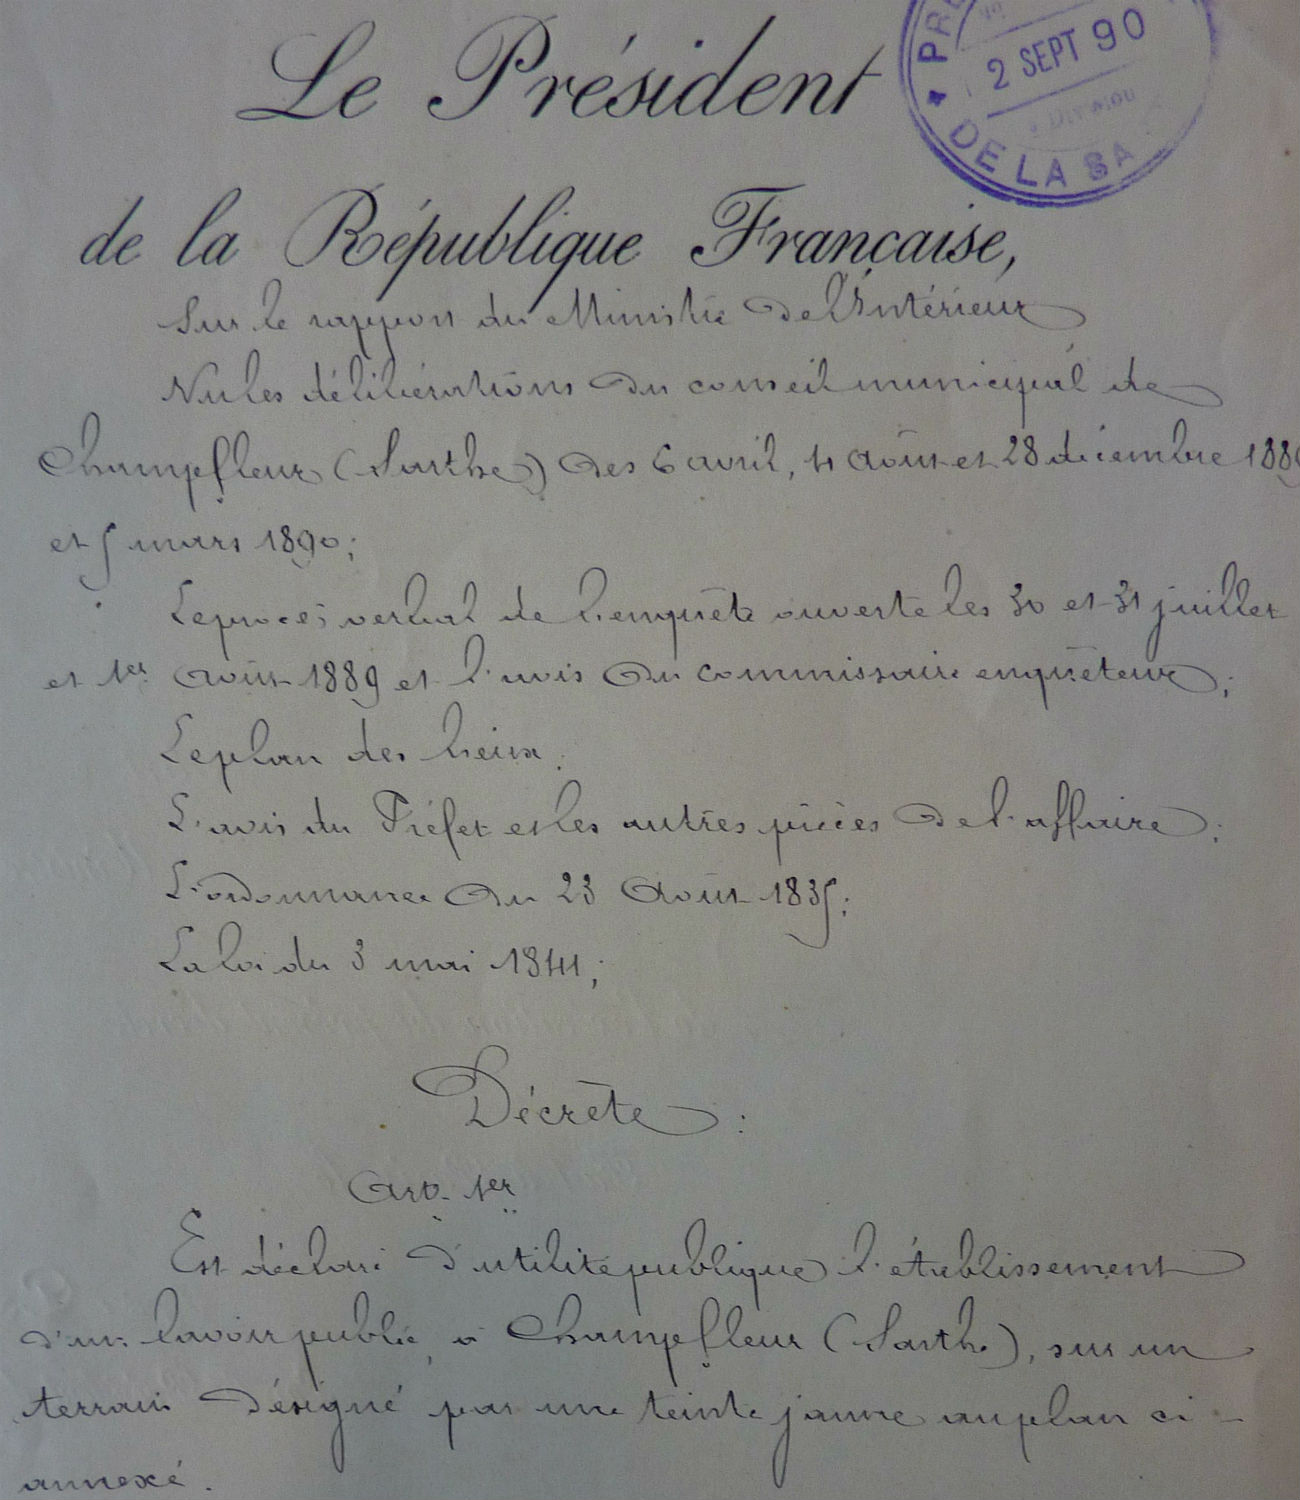 Le Président
PRÉ
2 SEPT 90
DE LA SA
de la République Française,
Sur le rapport du Ministre de l'Intérieur
Vu les délibérations du conseil municipal de
Champfleur (Sarthe) des 6 avril, 4 août et 28 décembre 1889
et 5 mars 1890;
Le procès verbal de l'enquête ouverte les 30 et 31 juillet
et 1er août 1889 et l'avis du commissaire enquêteur;
Le plan des lieux;
L'avis du Préfet et les autres pièces de l'affaire;
L'ordonnance du 23 Août 1835;
La loi du 3 mai 1841;
Décrète:
Art. 1er
Est déclaré d'utilité publique l'établissement
d'un lavoir public, à Champfleur (Sarthe), sur un
terrain désigné par une teinte jaune au plan ci-
annexé.